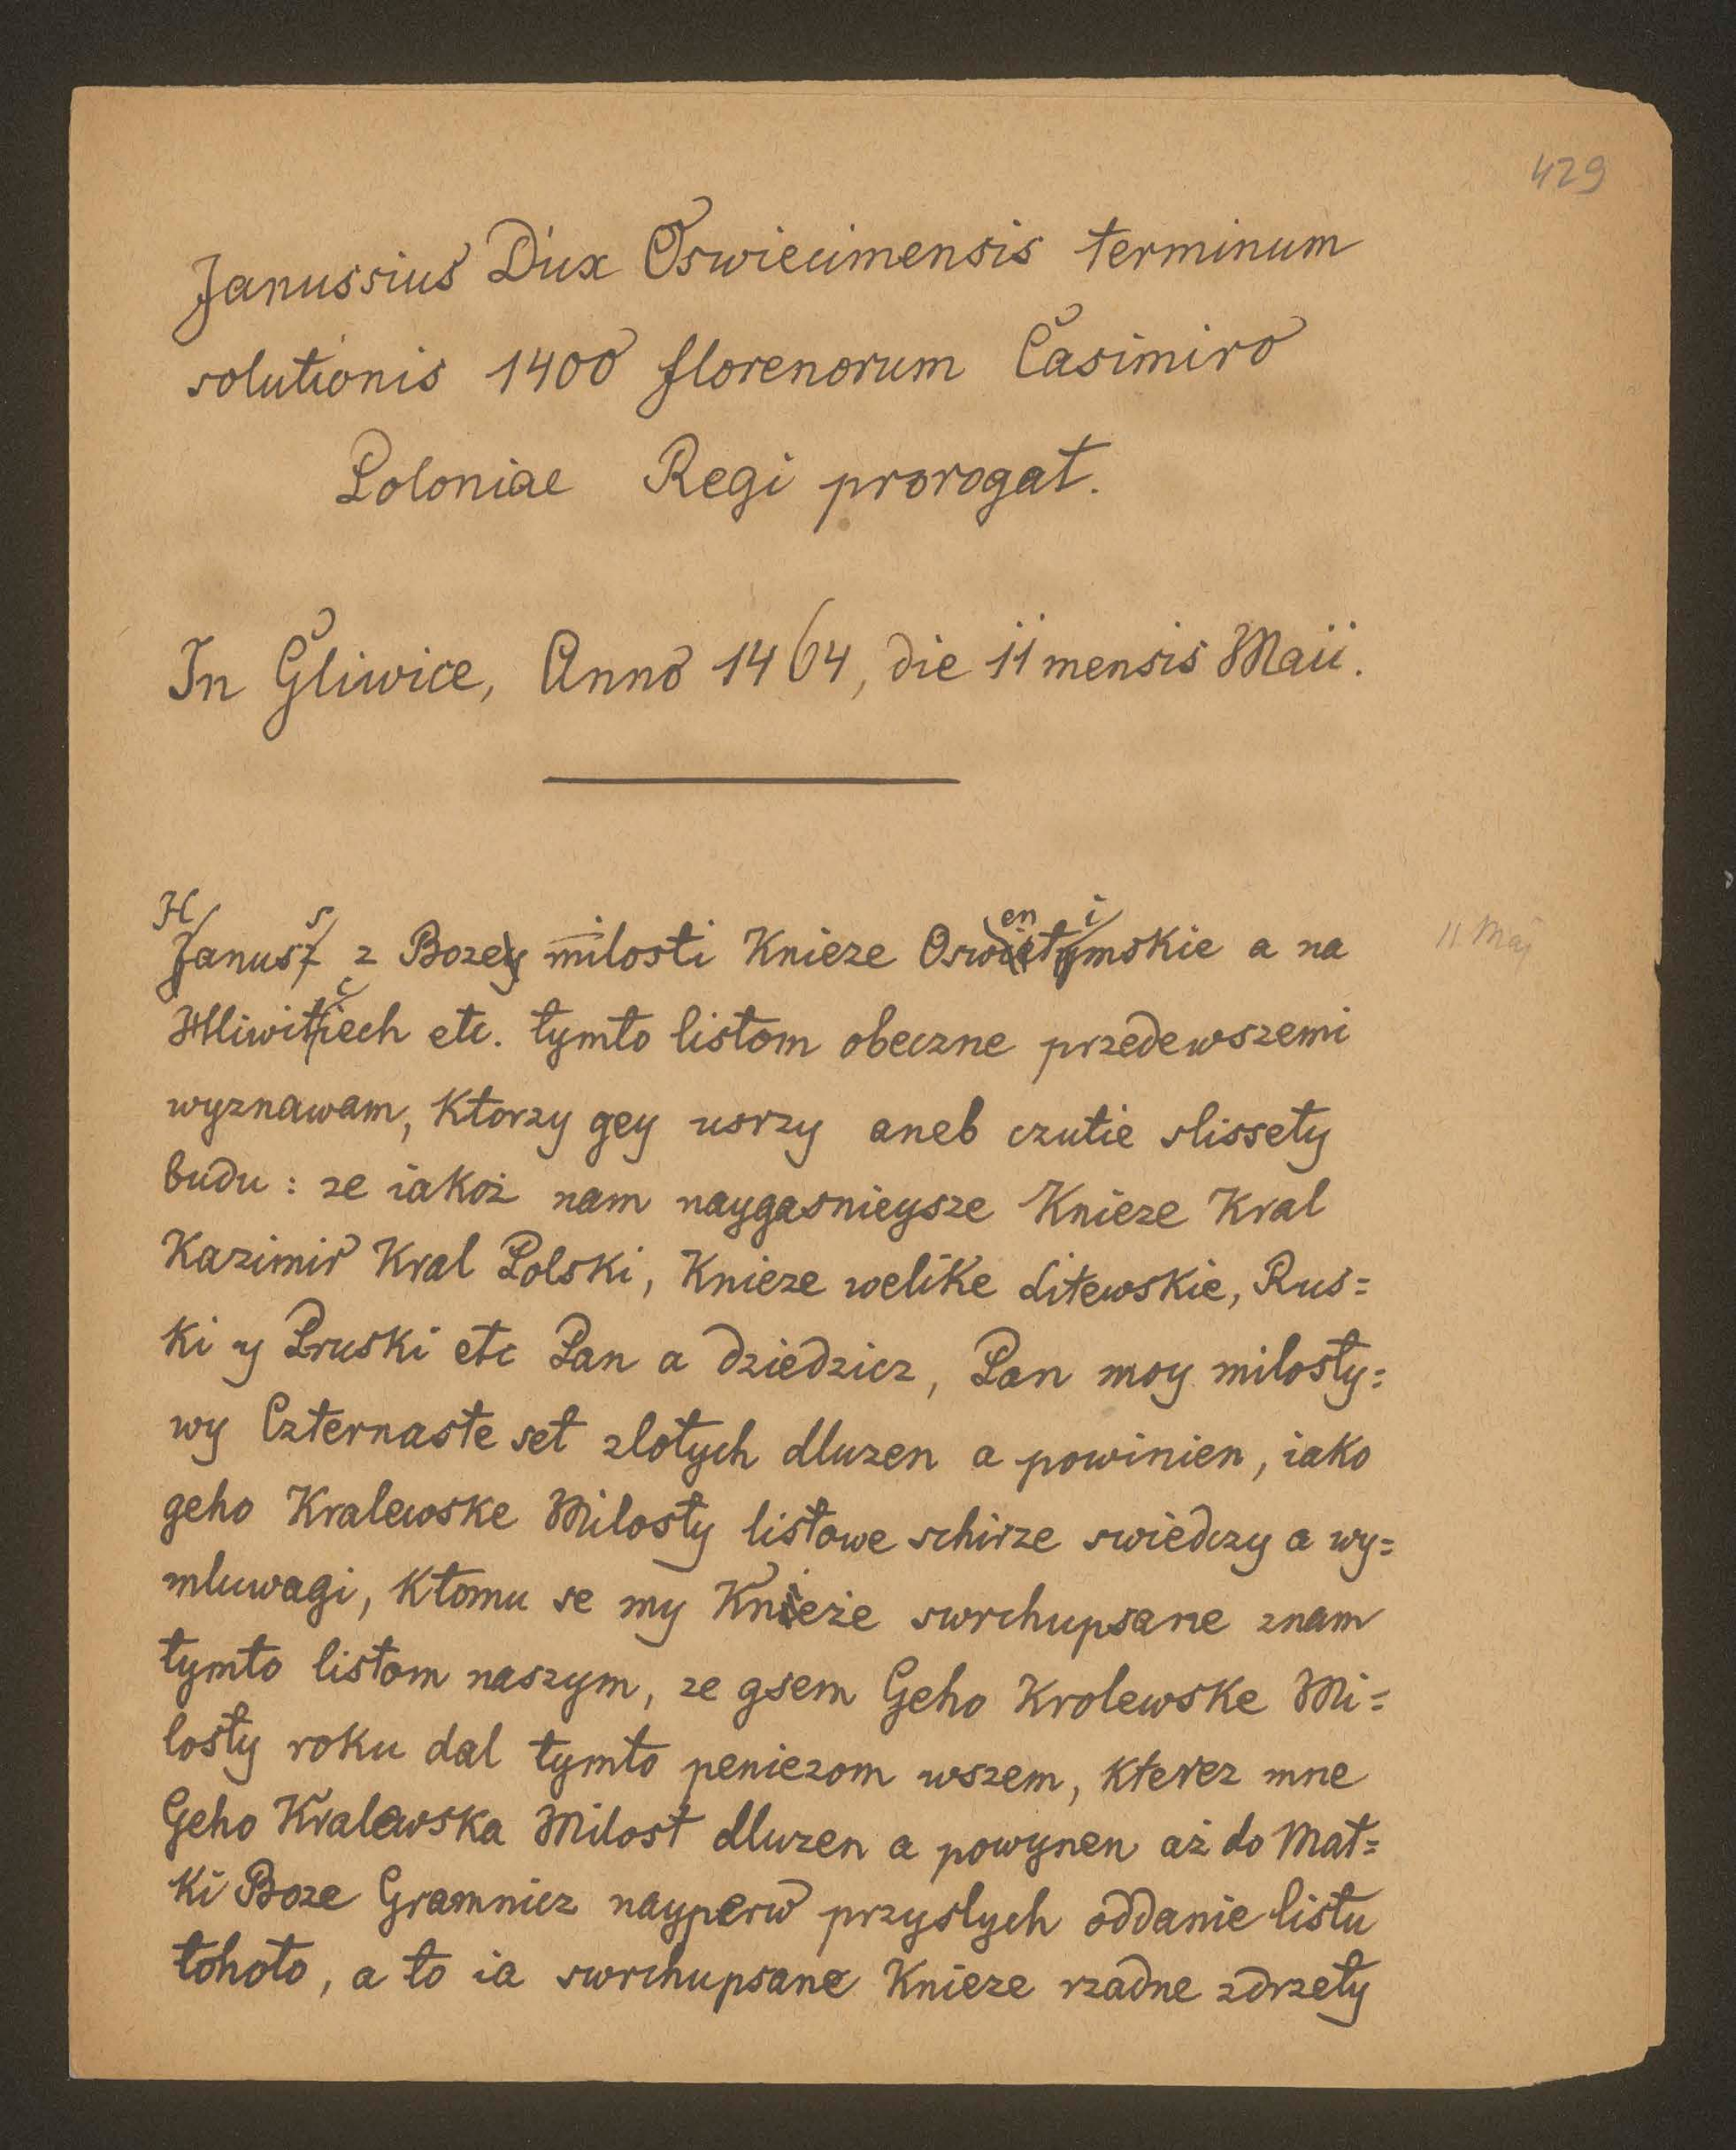 429
Janussius Dux Oswiecimensis terminum
solutionis 1400 florenorum Casimiro
Poloniae Regi prorogat.
In Gliwice, Anno 1464, die 11 mensis Maii.
H s en i
Janusz z Bozey milosti Knieze Oswietymskie a na
11 Maj
c
Hliwitiech etc. tymto listom obeczne przedewszemi
wyznawam, Ktorzy gey usrzy aneb czutie slissety
budu : ze iakoż nam naygasnieysze Knieze Kral
Kazimir Kral Polski, Knieze welike Litewskie, Rus=
ki y Pruski etc Pan a dziedzicz, Pan moy milosty=
wy Czternaste set zlotych dluzen a powinien, iako
geho Kralewske Milosty listowe schirze swiedczy a wy=
mluwagi, Ktomu se my Knieże swrchupsane znam
tymto listom naszym, ze gsem Geho Krolewske Mi=
losty roku dal tymto peniezom wszem, kterez mne
Geho Kralewska Milost dluzen a powynen aż do Mat=
ki Boze Gramnicz nayperw przyslych oddanie listu
tohoto, a to ia swrchupsane Knieze rzadne zdrzety